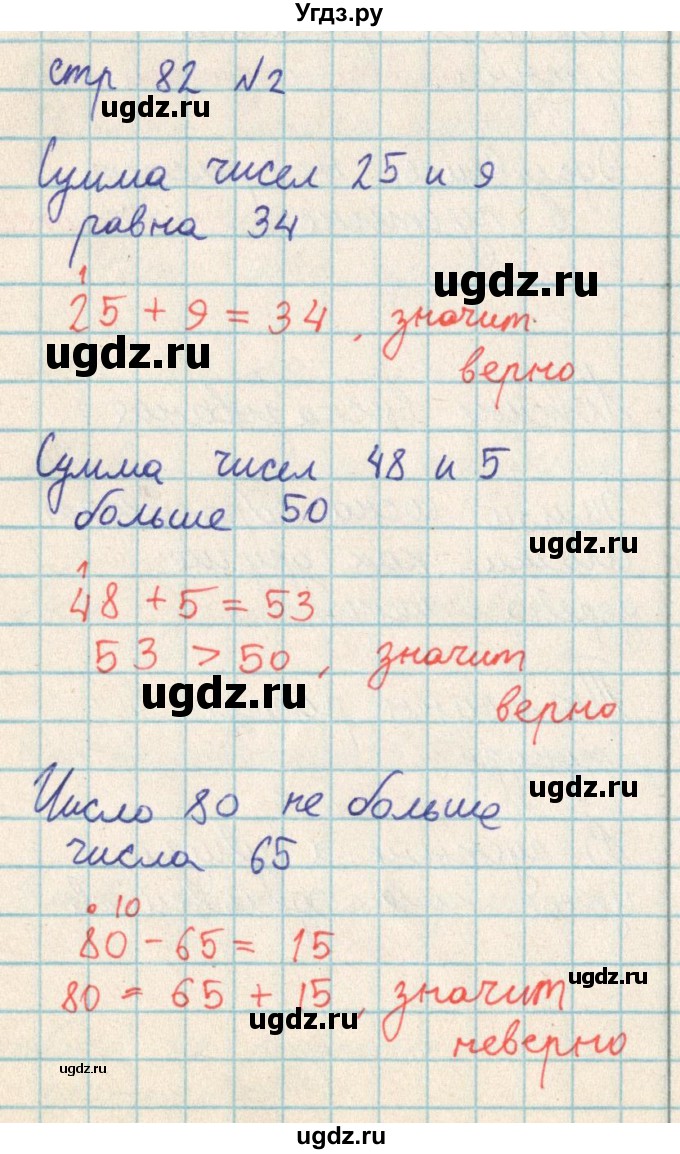 Угдз.ру
стр 82 №2
ugdz.ru
Сумма чисел 25 и 9
равна 34
ugdz.ru
1
25 + 9 = 34, значит
ugdz.ru
верно
Сумма чисел 48 и 5
больше 50
ugdz.ru
1
48 + 5 = 53
53 > 50, значит
ugdz.ru
верно
ugdz.ru
Число 80 не больше
числа 65
• 10
80 - 65 = 15
ugdz.ru
80 = 65 + 15, значит
ugdz.ru
неверно
ugdz.ru
ugdz.ru